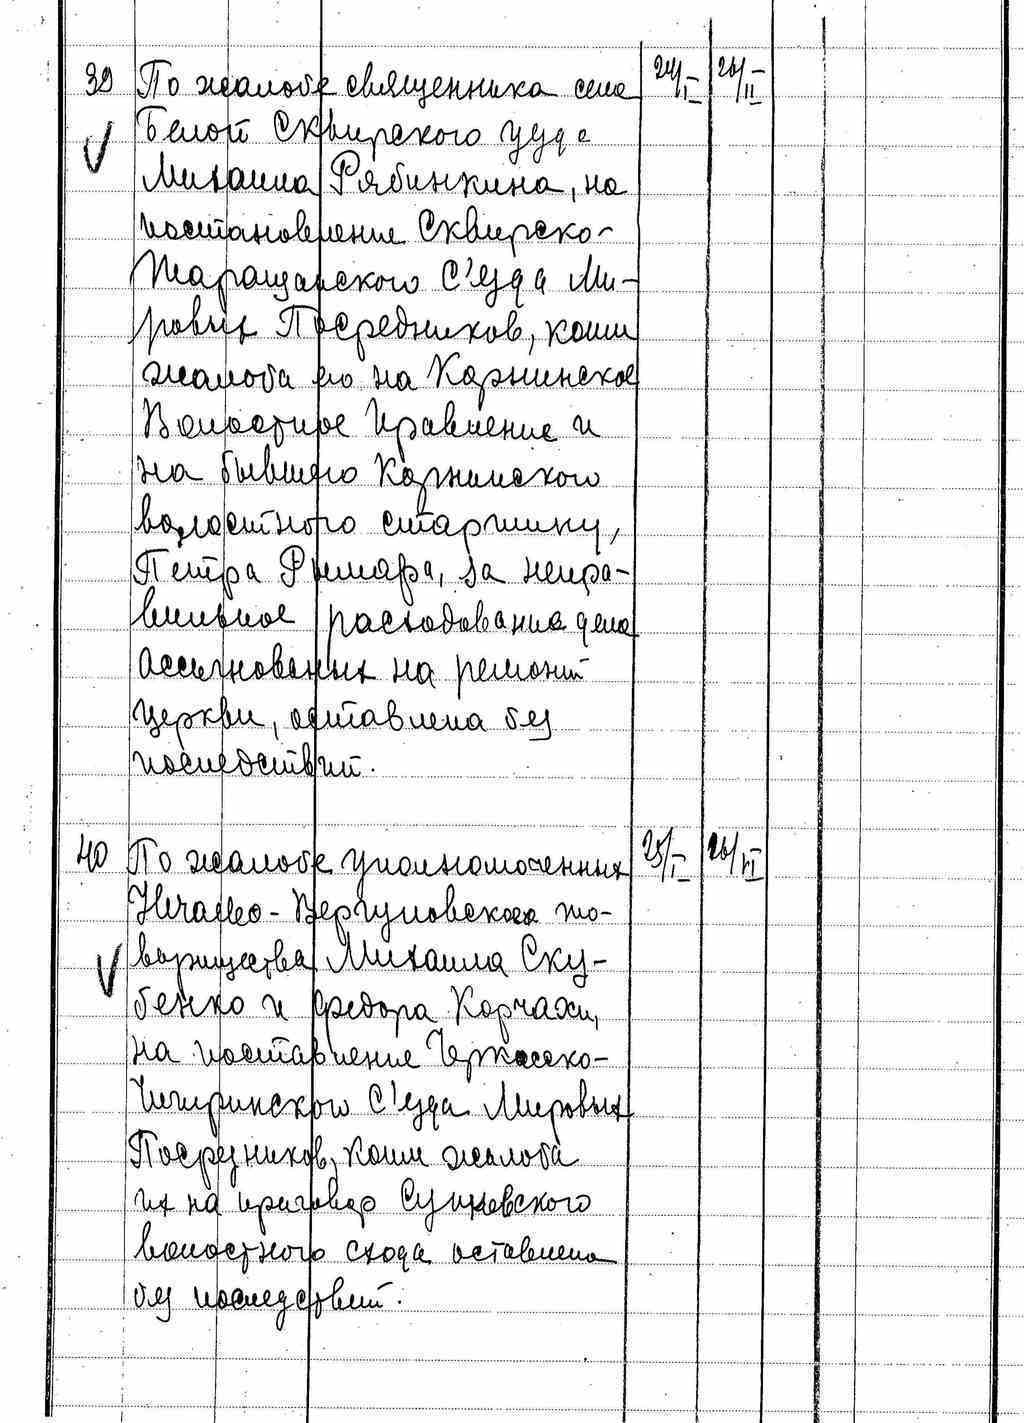 39 По жалобе священника села 24/I 26/II
Белой Сквирского уезда
Михаила Рябинкина, на
постановление Сквирско-
Таращанского С'езда Ми-
ровых Посредников, коим
жалоба его на Корнинское
Волостное Правление и
на бывшего Корнинского
волостного старшину,
Петра Римара, за непра-
вильное расходование денег
ассигнованых на ремонт
церкви, оставлена без
последствий.
40 По жалобе уполномоченных 25/I 26/VI
- Вергуновского то-
варищества Михаила Ску-
бенко и Федора Корчаки,
на поставление Черкасско-
Чигиринского С'езда Мировых
Посредников, коим жалоба
их на приговор Сунковского
волостного схода оставлена
без последствий.